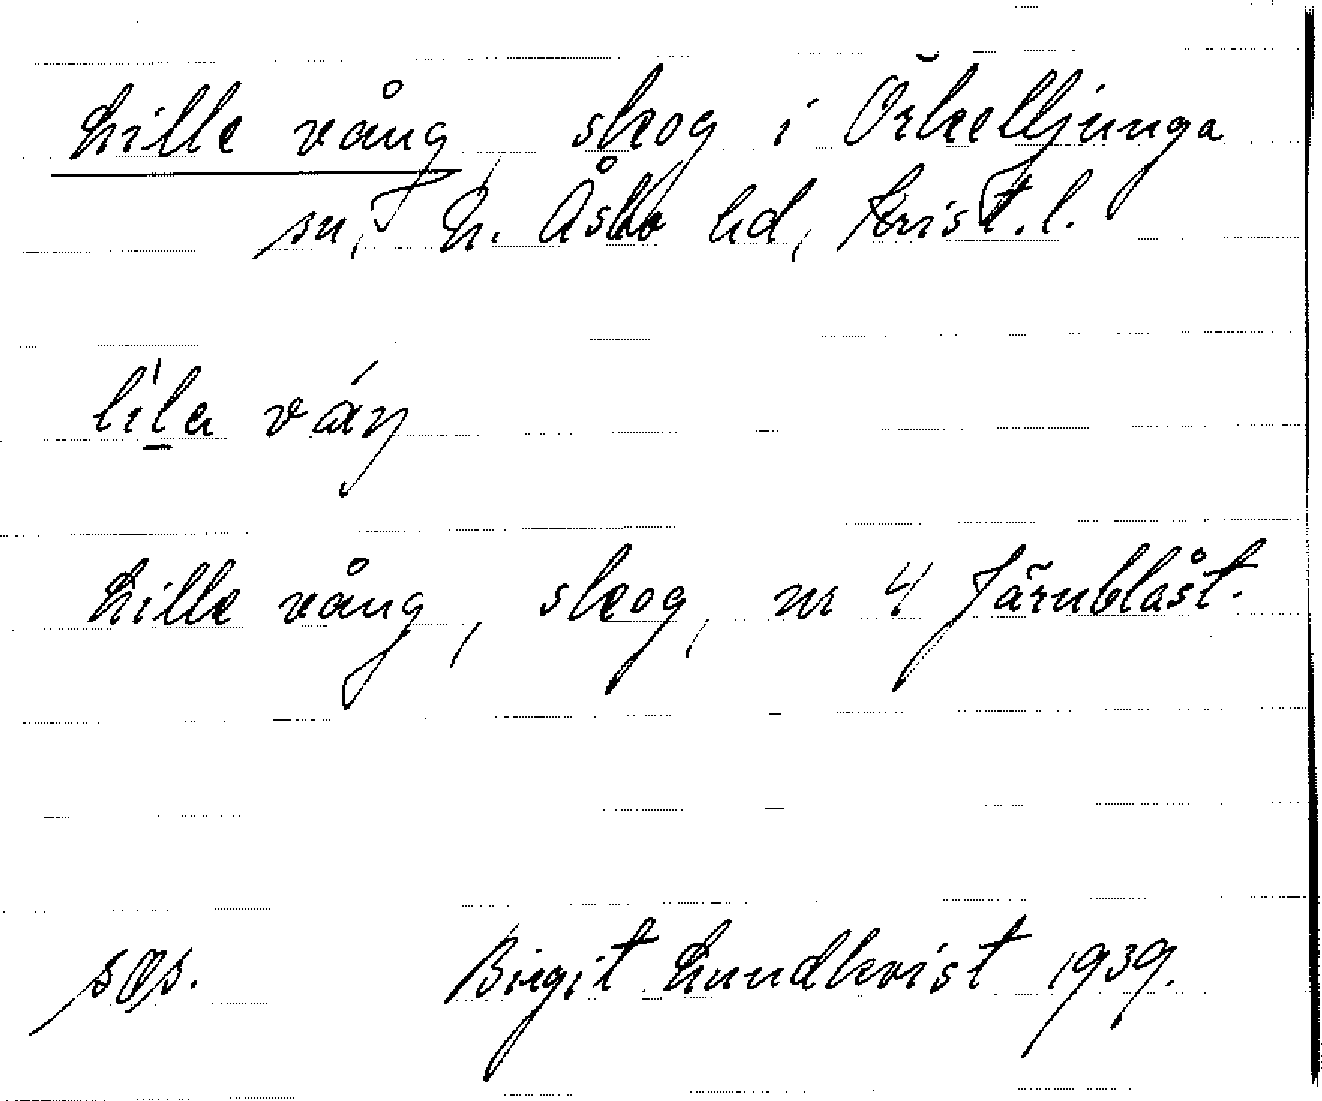 Lille vång, skog i Örkelljunga
sn, N. Åsbo hd, Krist. l.
lila váŋ
Lille vång, skog, nr 4 Järnblåst.
sgs. Birgit Lundkvist 1939.